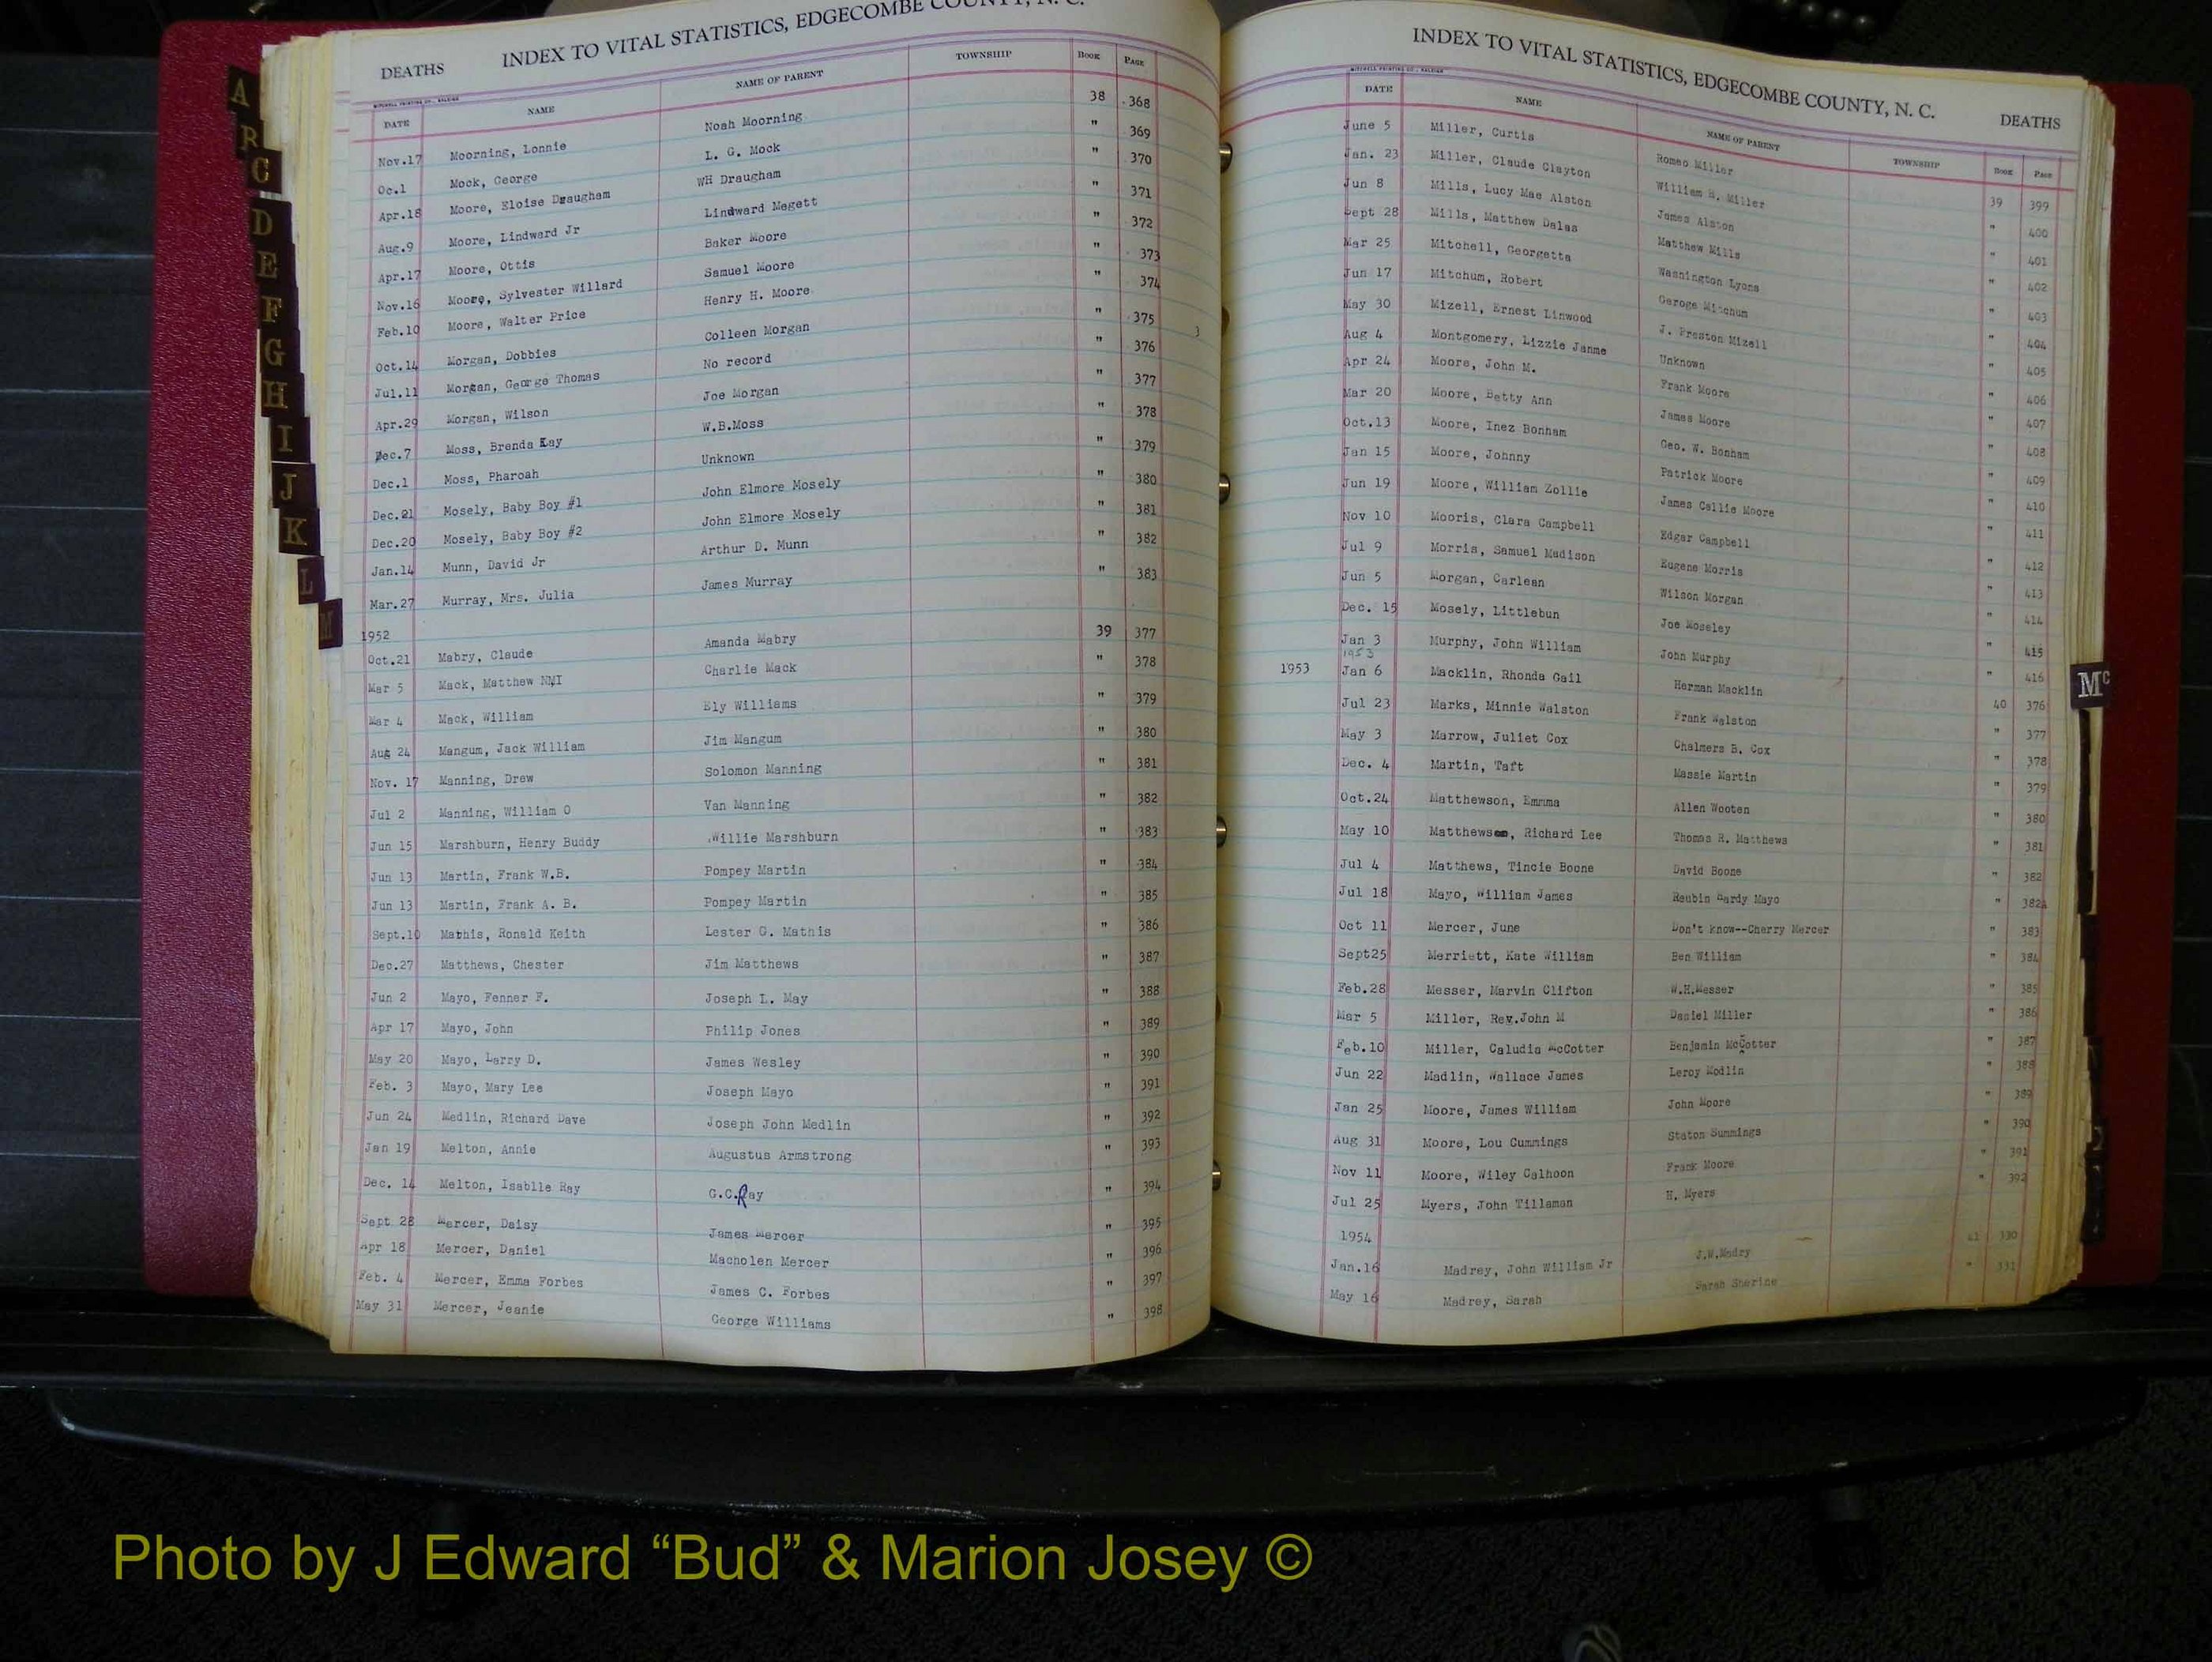 DEATHS INDEX TO VITAL STATISTICS, EDGECOMBE COUNTY, N. C.
MITCHELL PRINTING CO., RALEIGH
DATE NAME NAME OF PARENT TOWNSHIP BOOK PAGE
Nov.17 Moorning, Lonnie Noah Moorning 38 368
Oc.1 Mock, George L. G. Mock " 369
Apr.18 Moore, Eloise Draugham WH Draugham " 370
Aug.9 Moore, Lindward Jr Lindward Megett " 371
Apr.17 Moore, Ottis Baker Moore " 372
Nov.16 Moore, Sylvester Willard Samuel Moore " 373
Feb.10 Moore, Walter Price Henry H. Moore " 374
Oct.14 Morgan, Dobbies Colleen Morgan " 375
Jul.11 Morgan, George Thomas No record " 376
Apr.29 Morgan, Wilson Joe Morgan " 377
Dec.7 Moss, Brenda Kay W.B.Moss " 378
Dec.1 Moss, Pharoah Unknown " 379
Dec.21 Mosely, Baby Boy #1 John Elmore Mosely " 380
Dec.20 Mosely, Baby Boy #2 John Elmore Mosely " 381
Jan.14 Munn, David Jr Arthur D. Munn " 382
Mar.27 Murray, Mrs. Julia James Murray " 383
1952
Oct.21 Mabry, Claude Amanda Mabry 39 377
Mar 5 Mack, Matthew NMI Charlie Mack " 378
Mar 4 Mack, William Ely Williams " 379
Aug 24 Mangum, Jack William Jim Mangum " 380
Nov. 17 Manning, Drew Solomon Manning " 381
Jul 2 Manning, William O Van Manning " 382
Jun 15 Marshburn, Henry Buddy Willie Marshburn " 383
Jun 13 Martin, Frank W.B. Pompey Martin " 384
Jun 13 Martin, Frank A. B. Pompey Martin " 385
Sept.10 Mathis, Ronald Keith Lester G. Mathis " 386
Dec.27 Matthews, Chester Jim Matthews " 387
Jun 2 Mayo, Fenner F. Joseph L. May " 388
Apr 17 Mayo, John Philip Jones " 389
May 20 Mayo, Larry D. James Wesley " 390
Feb. 3 Mayo, Mary Lee Joseph Mayo " 391
Jun 24 Medlin, Richard Dave Joseph John Medlin " 392
Jan 19 Melton, Annie Augustus Armstrong " 393
Dec. 14 Melton, Isablle Ray G.C.Ray " 394
Sept 28 Mercer, Daisy James Mercer " 395
Apr 18 Mercer, Daniel Macnolen Mercer " 396
Feb. 4 Mercer, Emma Forbes James C. Forbes " 397
May 31 Mercer, Jeanie George Williams " 398
INDEX TO VITAL STATISTICS, EDGECOMBE COUNTY, N. C. DEATHS
MITCHELL PRINTING CO., RALEIGH
DATE NAME NAME OF PARENT TOWNSHIP BOOK PAGE
June 5 Miller, Curtis Romeo Miller 39 399
Jan. 23 Miller, Claude Clayton William H. Miller " 400
Jun 8 Mills, Lucy Mae Alston James Alston " 401
Sept 28 Mills, Matthew Dalas Matthew Mills " 402
Mar 25 Mitchell, Georgetta Washington Lyons " 403
Jun 17 Mitchum, Robert Geroge Mitchum " 404
May 30 Mizell, Ernest Linwood J. Preston Mizell " 405
Aug 4 Montgomery, Lizzie Janme Unknown " 406
Apr 24 Moore, John M. Frank Moore " 407
Mar 20 Moore, Betty Ann James Moore " 408
Oct.13 Moore, Inez Bonham Geo. W. Bonham " 409
Jan 15 Moore, Johnny Patrick Moore " 410
Jun 19 Moore, William Zollie James Callie Moore " 411
Nov 10 Mooris, Clara Campbell Edgar Campbell " 412
Jul 9 Morris, Samuel Madison Eugene Morris " 413
Jun 5 Morgan, Carlean Wilson Morgan " 414
Dec. 15 Mosely, Littlebun Joe Moseley " 415
Jan 3 Murphy, John William John Murphy " 416
1953
1953 Jan 6 Macklin, Rhonda Gail Herman Macklin 40 376
Jul 23 Marks, Minnie Walston Frank Walston " 377
May 3 Marrow, Juliet Cox Chalmers B. Cox " 378
Dec. 4 Martin, Taft Massie Martin " 379
Oct.24 Matthewson, Emmma Allen Wooten " 380
May 10 Matthews, Richard Lee Thomas R. Matthews " 381
Jul 4 Matthews, Tincie Boone David Boone " 382
Jul 18 Mayo, William James Reubin Hardy Mayo " 382a
Oct 11 Mercer, June Don't know--Cherry Mercer " 383
Sept25 Merriett, Kate William Ben William " 384
Feb.28 Messer, Marvin Clifton W.H.Messer " 385
Mar 5 Miller, Rev.John M Daniel Miller " 386
Feb.10 Miller, Caludia McCotter Benjamin McCotter " 387
Jun 22 Madlin, Wallace James Leroy Modlin " 388
Jan 25 Moore, James William John Moore " 389
Aug 31 Moore, Lou Cummings Staton Summings " 390
Nov 11 Moore, Wiley Calhoon Frank Moore " 391
Jul 25 Myers, John Tillaman H. Myers " 392
1954
Jan.16 Madrey, John William Jr J.W.Madry 41 330
May 16 Madrey, Sarah Sarah Sherine " 331
A
B
C
D
E
F
G
H
I
J
K
L
M
Mc
Photo by J Edward “Bud” & Marion Josey ©